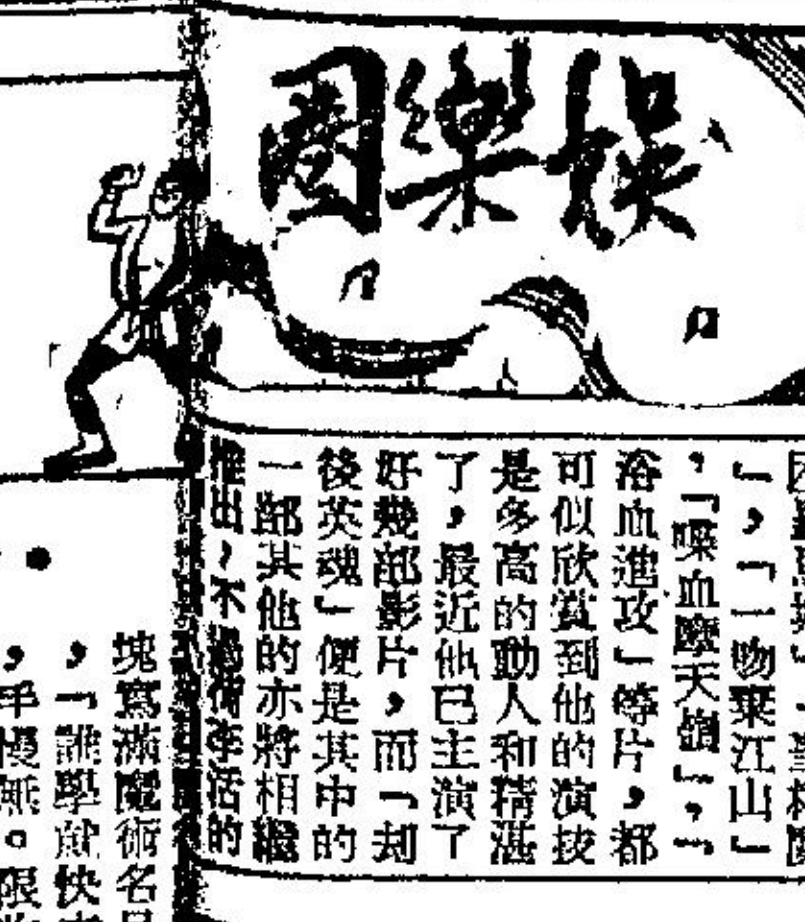 娛樂圈
」,「一吻棄江山」
,「喋血摩天嶺」,「
浴血進攻」等片,都
可似欣賞到他的演技
是多高的動人和精湛
了,最近他已主演了
好幾部影片,而「刧
後英魂」便是其中的
一部其他的亦將相繼
推出,不
活的
塊寫滿魔術名
,「誰學就快
,手慢無。限